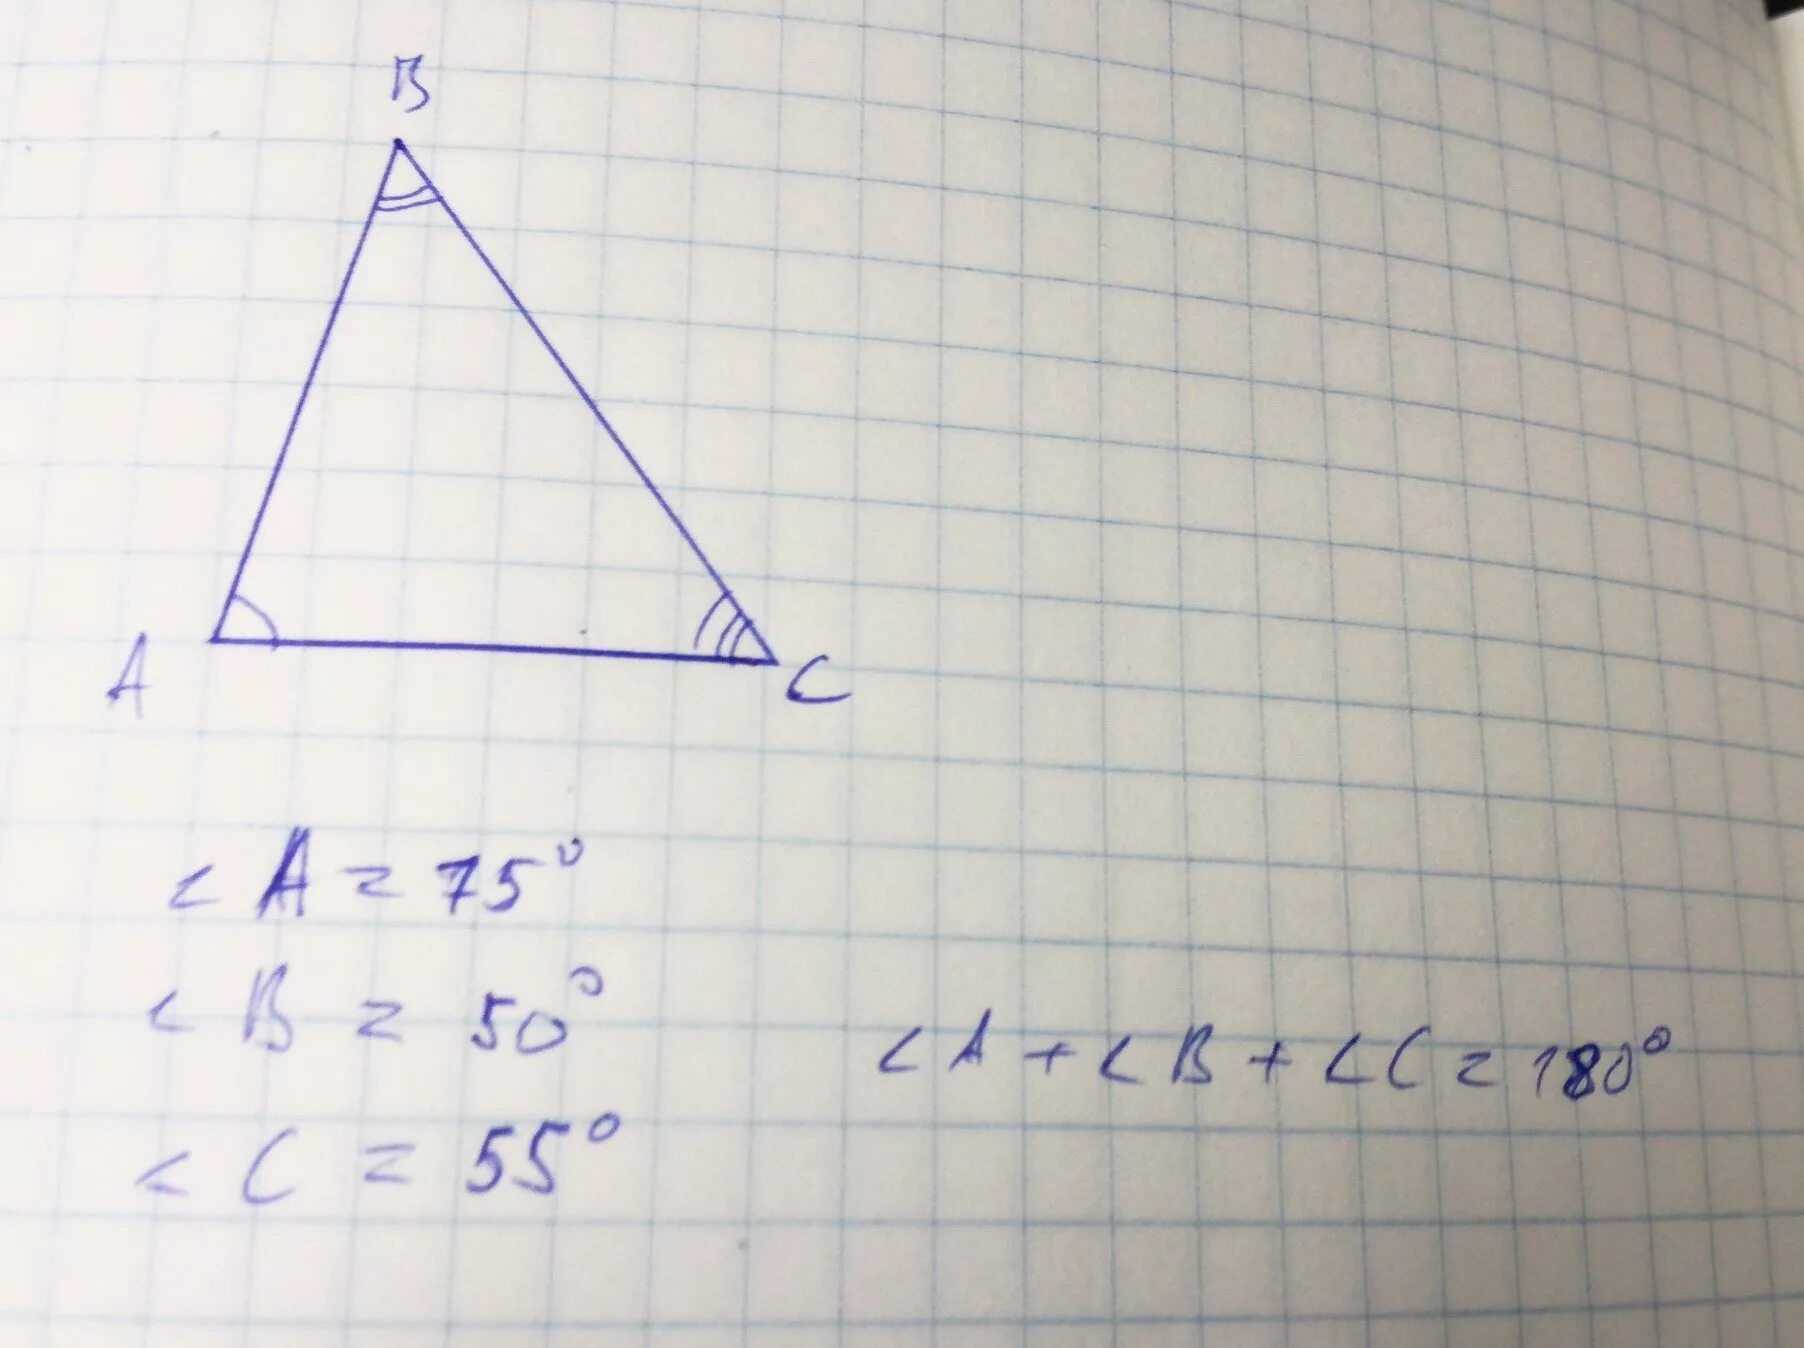 B
A
C
∠A = 75°
∠B = 50°
∠C = 55°
∠A + ∠B + ∠C = 180°